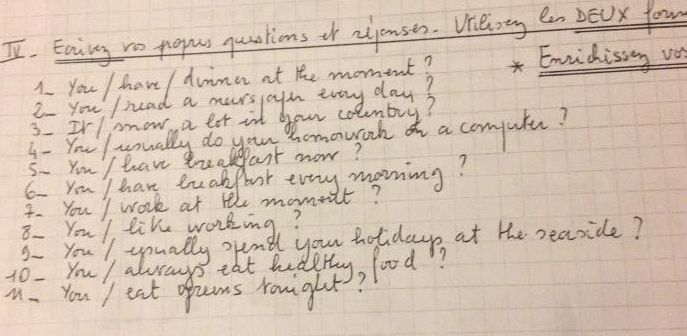 IV. Ecrivez vos propres questions et réponses. Utilisez les DEUX form
1_ You / have / dinner at the moment ? * Enrichissez vos
2_ You / read a newspaper every day ?
3_ It / snow a lot in your country ?
4_ You / usually do your homework on a computer ?
5_ You / have breakfast now ?
6_ You / have breakfast every morning ?
7_ You / work at the moment ?
8_ You / like working ?
9_ You / usually spend your holidays at the seaside ?
10_ You / always eat healthy food ?
11_ You / eat greens tonight ?